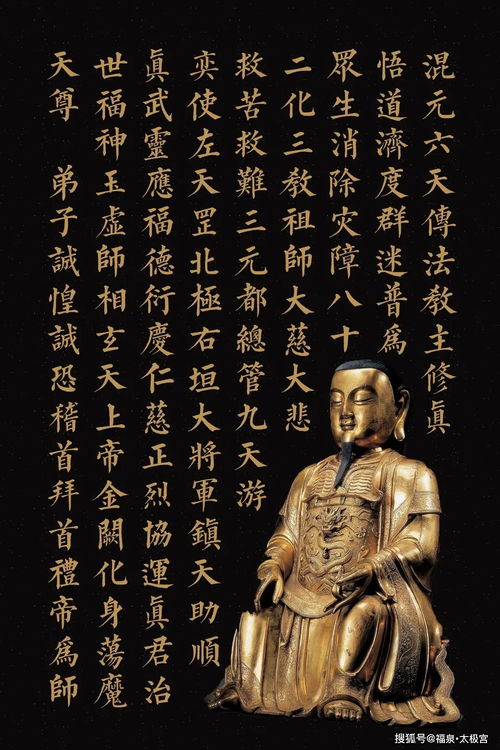 混元六天傳法教主修眞
悟道濟度群迷普為
眾生消除灾障八十
二化三教祖師大慈大悲
救苦救難三元都總管九天游
奕使左天罡北極右垣大將軍鎮天助順
眞武靈應福德衍慶仁慈正烈協運眞君治
世福神玉虛師相玄天上帝金闕化身蕩魔
天尊 弟子誠惶誠恐稽首拜首禮帝為師
搜狐号@福泉·太极宫